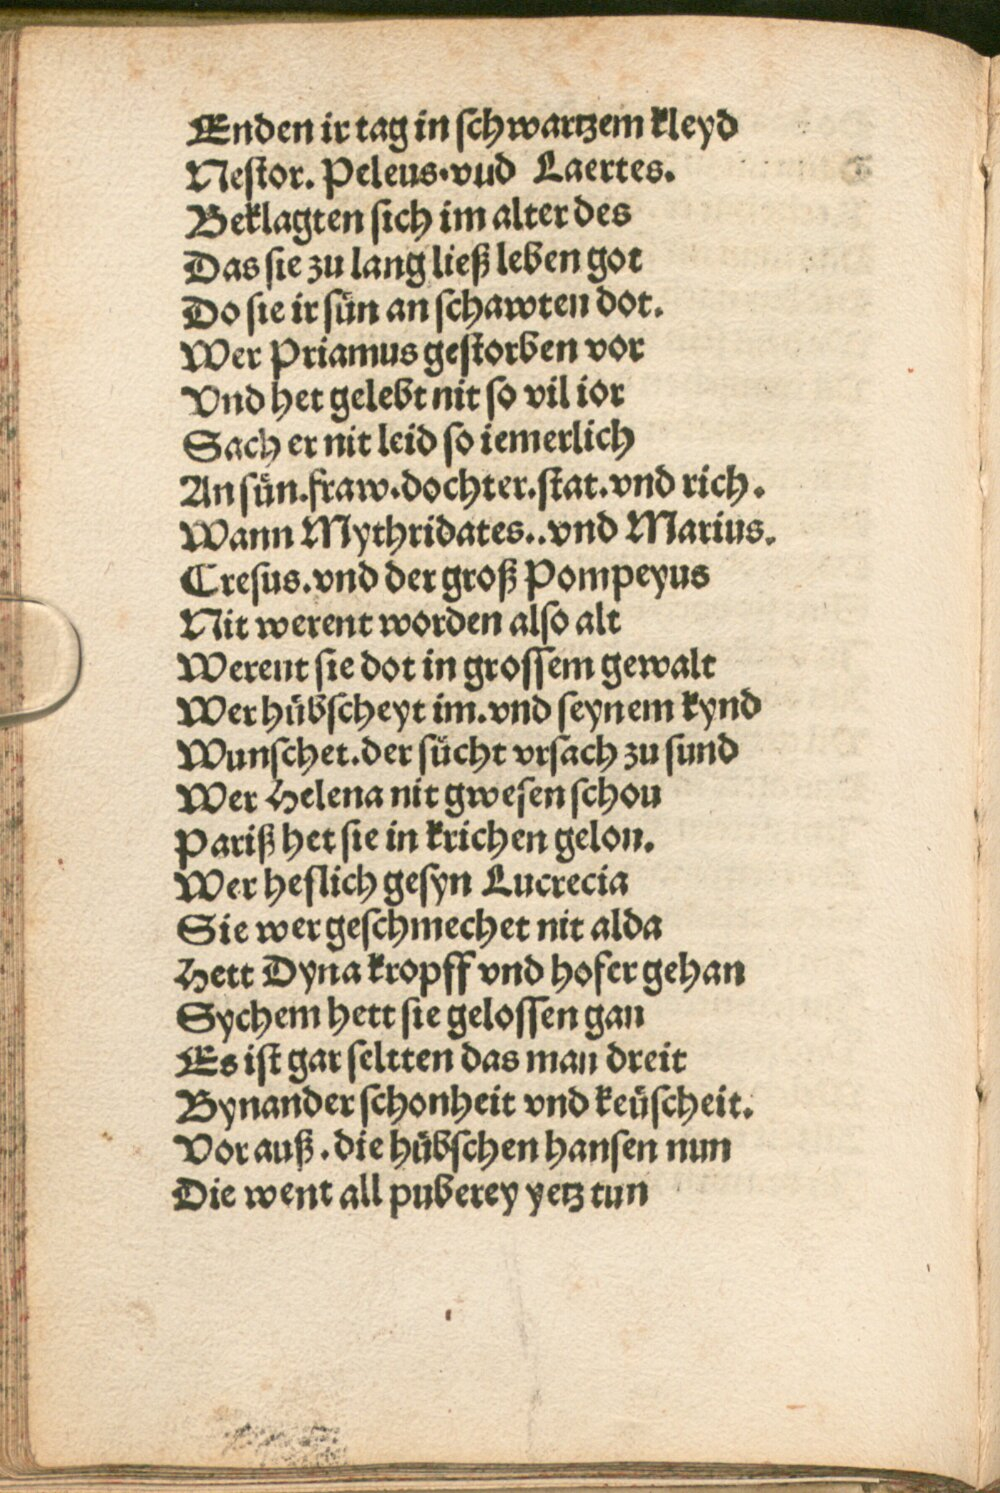 Enden ir tag in schwartzem kleyd
Nestor. Peleus·vud Laertes.
Beklagten sich im alter des
Das sie zu lang ließ leben got
Do sie ir sün an schawten dot.
Wer Priamus gestorben vor
Vnd het gelebt nit so vil ior
Sach er nit leid so iemerlich
An sün.fraw.dochter.stat.vnd rich.
Wann Mythridates..vnd Marius.
Cresus.vnd der groß Pompeyus
Nit werent worden also alt
Wereut sie dot in grossem gewalt
Wer hübscheyt im.vnd seynem kynd
Wunschet.der sücht vrsach zu sund
Wer Helena nit gwesen schou
Pariß het sie in krichen gelon.
Wer heslich gesyn Lucrecia
Sie wer geschmechet nit alda
Hett Dyna kropff vnd hofer gehan
Sychem hett sie gelossen gan
Es ist gar seltten das man dreit
Bynander schonheit vnd keüscheit.
Vor auß.die hübschen hansen nun
Die went all puberey yetz tun